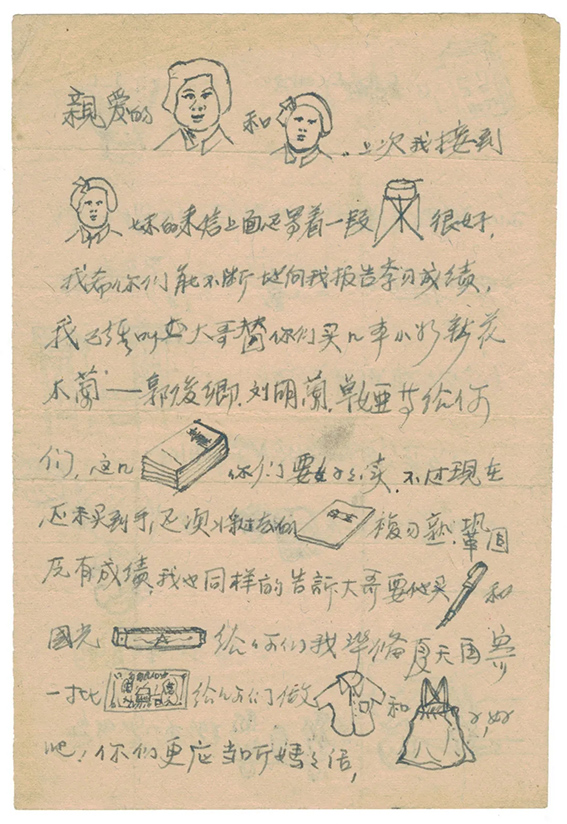 親爱的 和 上次我接到
妹的来信上面还写着一段 很好,
我希你们能不断地向我报告学习成绩,
我已 叫 大哥替你们买几本小 新花
木蘭——郭俊卿.刘明蘭.卓娅等给你
们,这几 你们要好好读.不过現在
还未买到手,必须将过去的 複习熟.鞏固
原有成绩,我也同样的告訴大哥要他买 和
國光 给你们我準備夏天再寄
一批 给你们做 和 好
吧!你们更应当听媽々话,